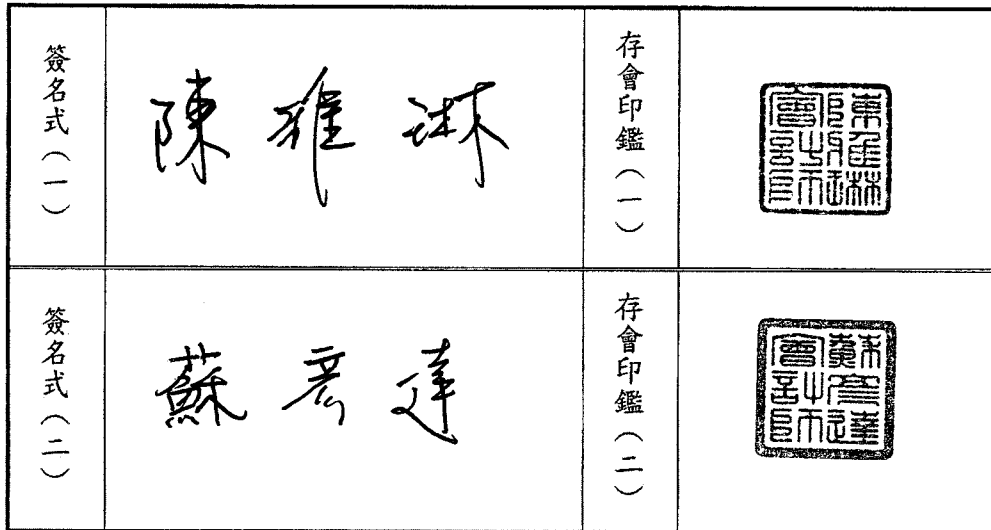 簽名式（一）
陳雅琳
存會印鑑（一）
陳雅琳
會計師
簽名式（二）
蘇彥達
存會印鑑（二）
蘇彥達
會計師